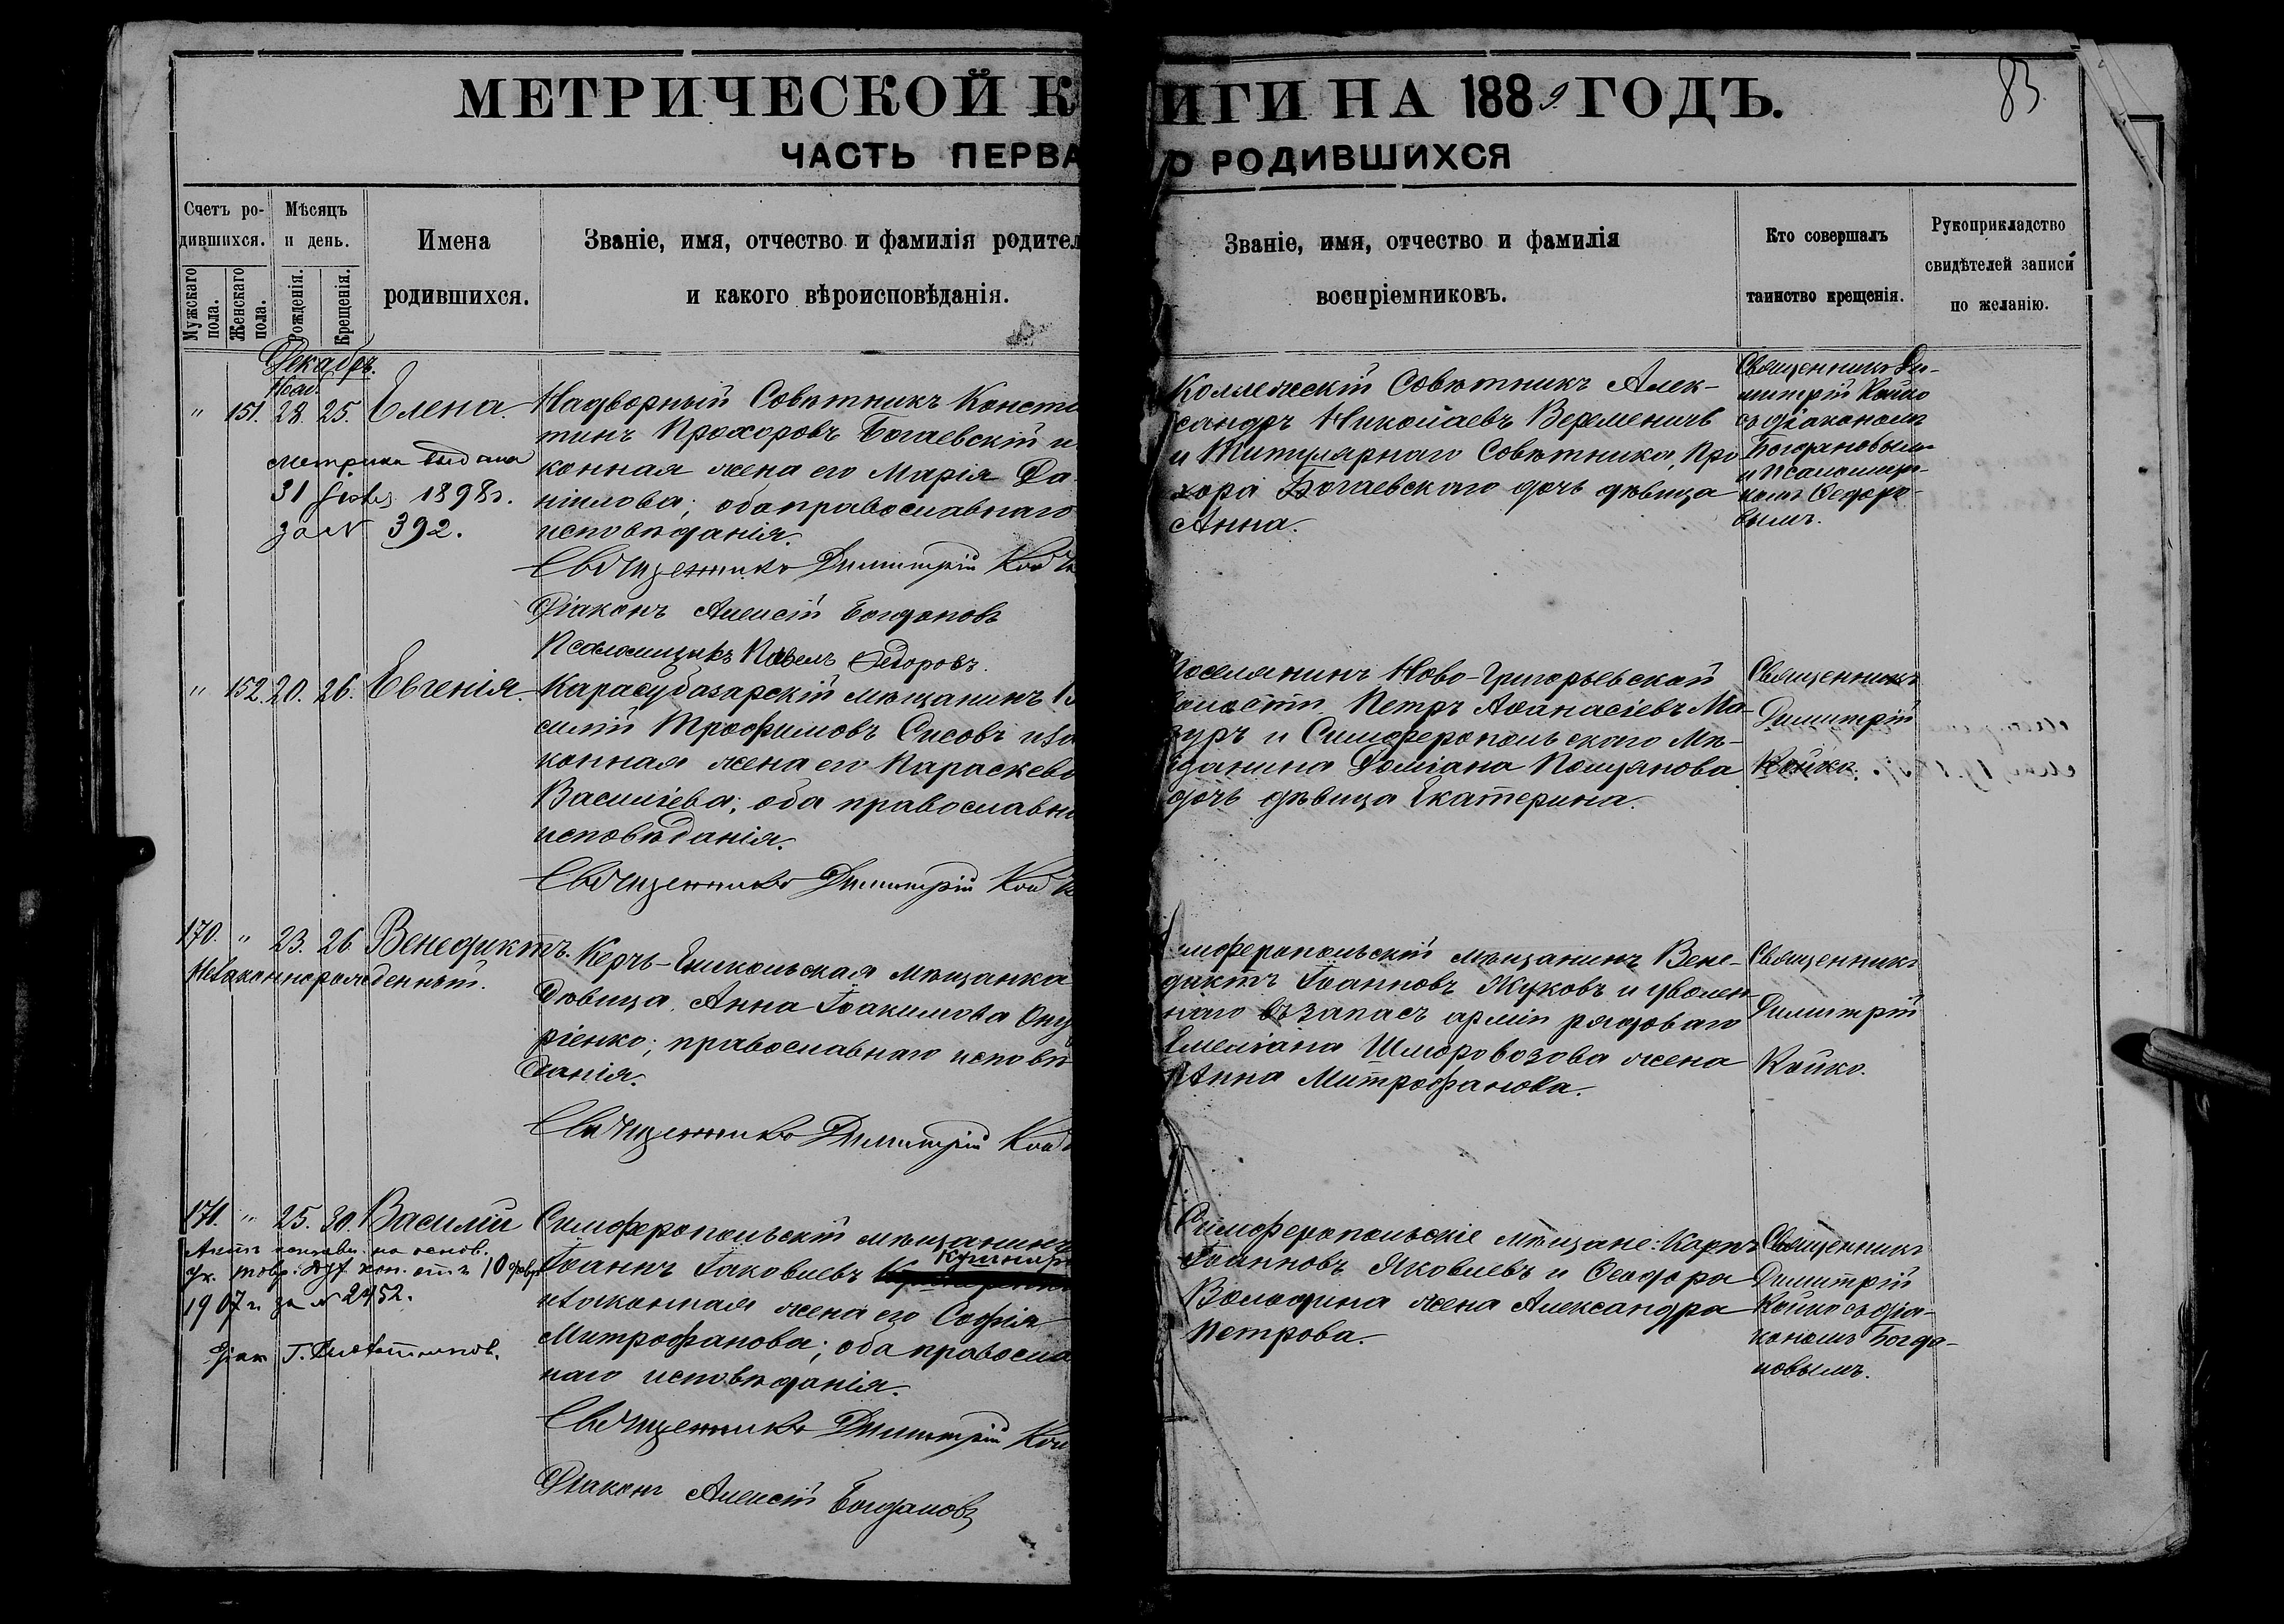 МЕТРИЧЕСКОЙ К
ИГИ НА 1889 ГОДЪ.
83.
ЧАСТЬ ПЕРВА
О РОДИВШИХСЯ
Счетъ ро-
дившихся.
Мужскаго пола.
Женскаго пола.
Мѣсяцъ
и день.
Рожденія.
Крещенія.
Имена
родившихся.
Званіе, имя, отчество и фамилія родител
и какого вѣроисповѣданія.
Званіе, имя, отчество и фамилія
воспріемниковъ.
Кто совершалъ
таинство крещенія.
Рукоприкладство
свидѣтелей записи
по желанію.
Декабрь.
" 151. 28. 25. Елена
метрика выдана
31 1898 г.
за № 392.
Надворный Совѣтникъ Конста
тинъ Прохоровъ Богаевскій и
конная жена его Марія Да
ніилова; оба православнаго
исповѣданія.
Священникъ Димитрій Кой
Діаконъ Алексій Богдановъ
Псаломщикъ Павелъ Федоровъ.
Коллежскій Совѣтникъ Алек-
сандръ Николаевъ Веременичъ
и Титулярнаго Совѣтника, Про
хора Богаевскаго дочь дѣвица
Анна.
Священникъ Ди-
митрій Койко
съ діакономъ
Богдановымъ
и псаломщи-
комъ Ѳедоро-
вымъ.
" 152. 20. 26. Евгенія.
Карасубазарскій мѣщанинъ Ва
силій Трофимовъ Сисовъ и за
конная жена его Параскева
Васильева; оба православн
исповѣданія.
Священникъ Димитрій Кой
поселянинъ Ново-Григорьевской
волости Петръ Аѳанасіевъ Ма-
зуръ и Симферопольскаго Мѣ-
щанина
дочь дѣвица Екатерина.
Священникъ
Димитрій
Койко.
170. " 23. 26 Венедиктъ.
Незаконнорожденный.
Керчь-Еникольская мѣщанка
Дѣвица, Анна Іоакимова
православнаго исповѣ
данія.
Священникъ Димитрій Кой
имферопольскій мѣщанинъ Вене-
диктъ Іоанновъ Жуковъ и уволен
наго въ запасъ арміи рядоваго
Емеліана Шморовозова жена
Анна Митрофанова.
Священникъ
Димитрій
Койко.
171. " 25. 30. Василій
на основ.
от 10 февр
1907 г. за № 2752.
Симферопольскій мѣщанинъ
Іоаннъ Іаковлевъ
и законная жена его Софія
Митрофанова; оба правосла
наго исповѣданія.
Священникъ Димитрій Кой
Діаконъ Алексій Богдановъ
Симферопольскіе мѣщане: Карпъ
Іоанновъ Яковлевъ и Ѳеодора
Володина жена Александра
Петрова.
Священникъ
Димитрій
Койко съ діа-
кономъ Богда-
новымъ.